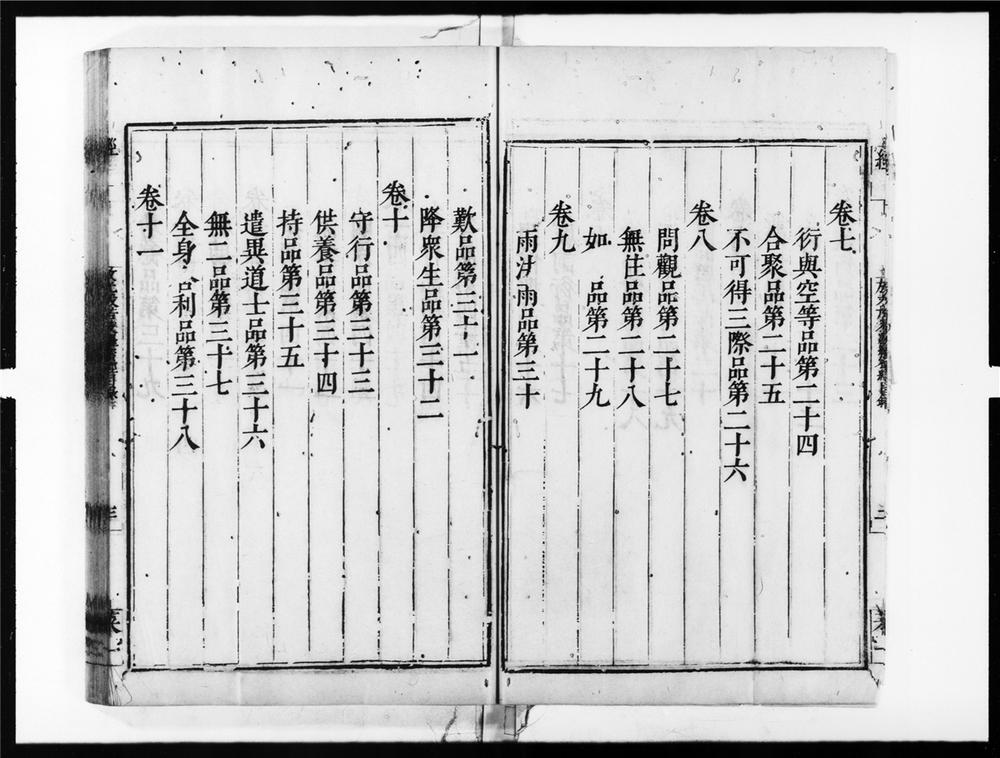 卷七
衍與空等品第二十四
合聚品第二十五
不可得三際品第二十六
卷八
問觀品第二十七
無住品第二十八
如　品第二十九
卷九
雨法雨品第三十
歎品第三十一
降衆生品第三十二
卷十
守行品第三十三
供養品第三十四
持品第三十五
遣異道士品第三十六
無二品第三十七
全身舍利品第三十八
卷十一